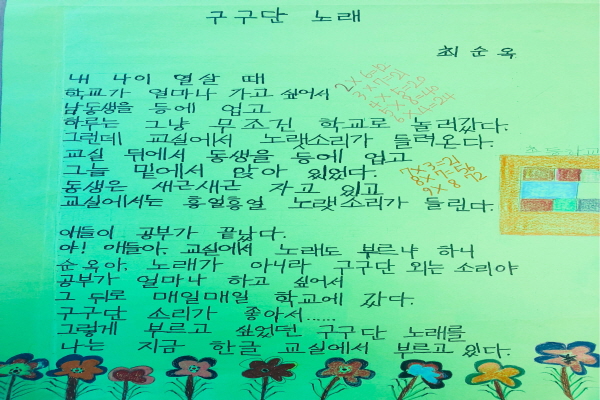 구구단 노래
최순옥
내 나이 열살 때
학교가 얼마나 가고 싶어서
남동생을 등에 업고
하루는 그냥 무조건 학교로 놀러갔다.
그런데 교실에서 노랫소리가 들려온다.
교실 뒤에서 동생을 등에 업고
그늘 밑에서 앉아 있었다.
동생은 새근새근 자고 있고
교실에서는 흥얼흥얼 노랫소리가 들린다.
얘들이 공부가 끝났다.
야! 얘들아, 교실에서 노래도 부르냐 하니
순옥아, 노래가 아니라 구구단 외는 소리야
공부가 얼마나 하고 싶어서
그 뒤로 매일매일 학교에 갔다.
구구단 소리가 좋아서......
그렇게 부르고 싶었던 구구단 노래를
나는 지금 한글 교실에서 부르고 있다.
7×3=21
8×7=56
9×8=72